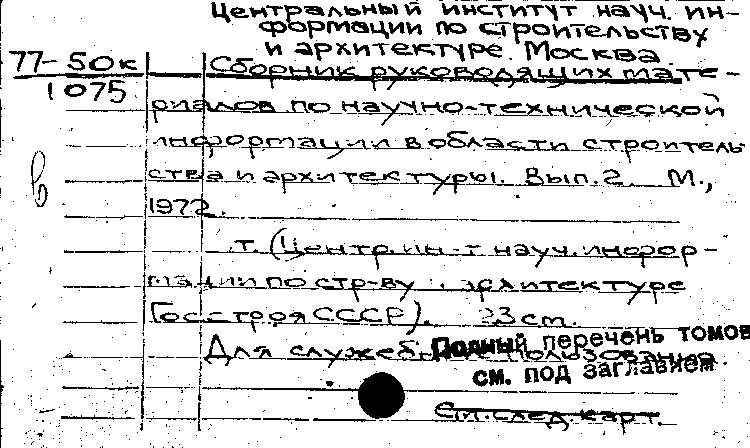 Центральный институт науч. ин-
формации по строительству
и архитектуре. Москва.
77-50к Сборник руководящих мате-
1075 риалов по научно-технической
информации в области строитель
ства и архитектуры. Вып. 2. М.,
1972.
т. (Центр. ин-т науч. инфор-
мации по стр-ву и архитектуре
Госстроя СССР). 23 cm.
Для служеб. пользования.
Полный перечень томов
см. под заглавием
См. след. карт.